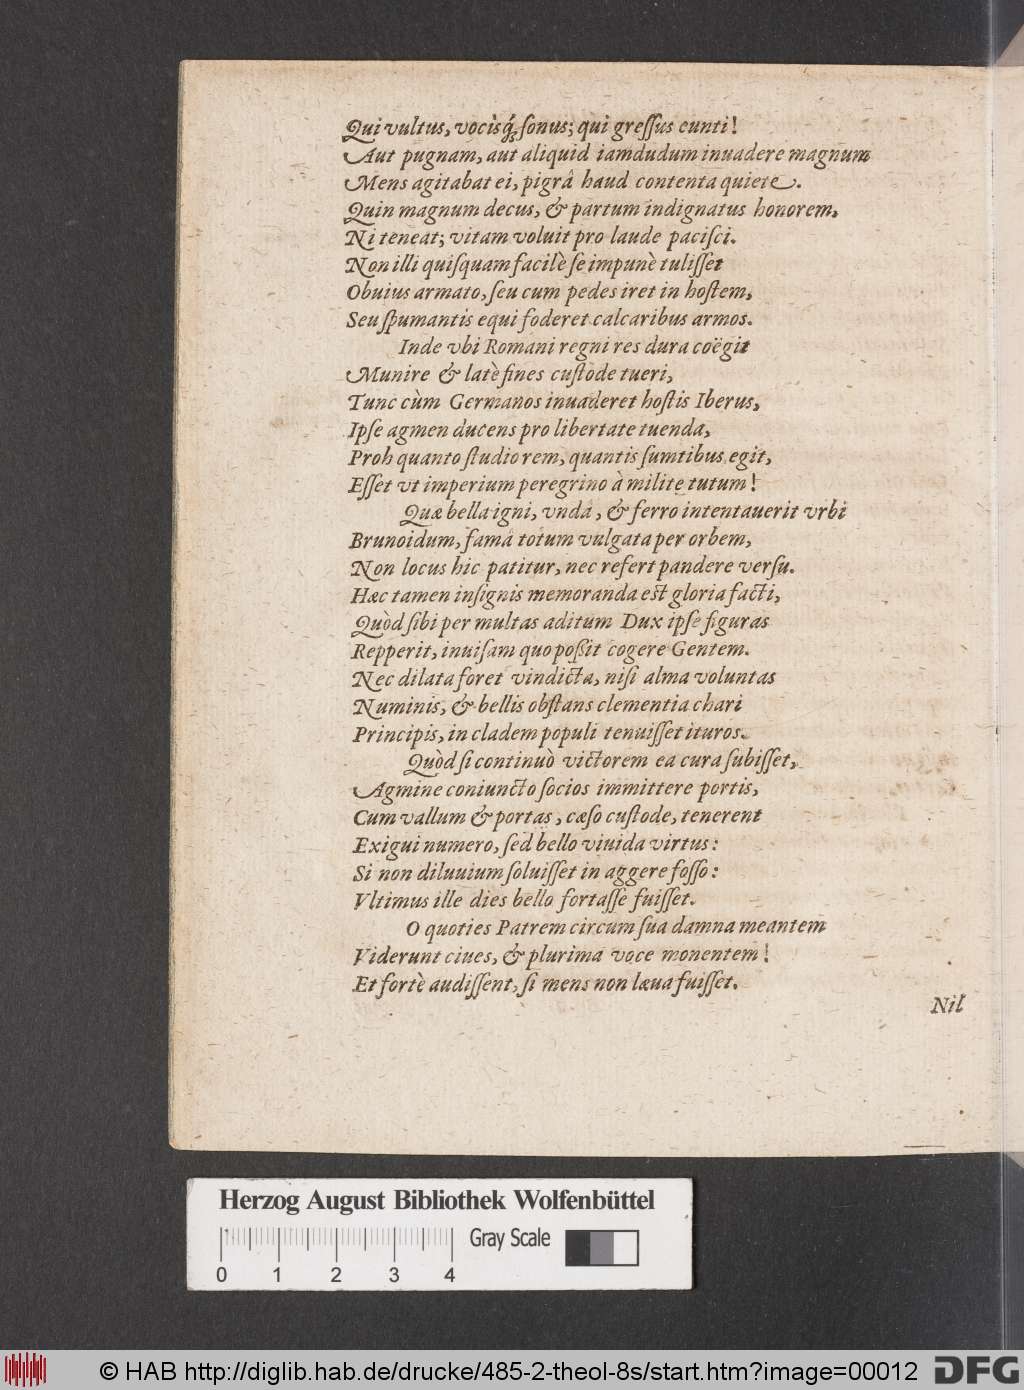 Qui vultus, vocisq́; sonus; qui gressus eunti!
Aut pugnam, aut aliquid iamdudum inuadere magnum
Mens agitabat ei, pigrâ haud contenta quiete.
Quin magnum decus, & partum indignatus honorem,
Ni teneat; vitam voluit pro laude pacisci.
Non illi quisquam facilè se impunè tulisset
Obuius armato, seu cum pedes iret in hostem,
Seu spumantis equi foderet calcaribus armos.
Inde vbi Romani regni res dura coëgit
Munire & latè fines custode tueri,
Tunc cùm Germanos inuaderet hostis Iberus,
Ipse agmen ducens pro libertate tuenda,
Proh quanto studio rem, quantis sumtibus egit,
Esset vt imperium peregrino à milite tutum!
Quæ bella igni, vndâ, & ferro intentauerit vrbi
Brunoidum, famâ totum vulgata per orbem,
Non locus hic patitur, nec refert pandere versu.
Hæc tamen insignis memoranda est gloria facti,
Quòd sibi per multas aditum Dux ipse figuras
Repperit, inuisam quo poßit cogere Gentem.
Nec dilata foret vindicta, nisi alma voluntas
Numinis, & bellis obstans clementia chari
Principis, in cladem populi tenuisset ituros.
Quòd si continuò victorem ea cura subisset,
Agmine coniuncto socios immittere portis,
Cum vallum & portas, cæso custode, tenerent
Exigui numero, sed bello viuida virtus:
Si non diluuium soluisset in aggere fosso:
Vltimus ille dies bello fortasse fuisset.
O quoties Patrem circum sua damna meantem
Viderunt ciues, & plurima voce monentem!
Et fortè audissent, si mens non læua fuisset.
Nil
Herzog August Bibliothek Wolfenbüttel
Gray Scale
0 1 2 3 4
© HAB http://diglib.hab.de/drucke/485-2-theol-8s/start.htm?image=00012 DFG